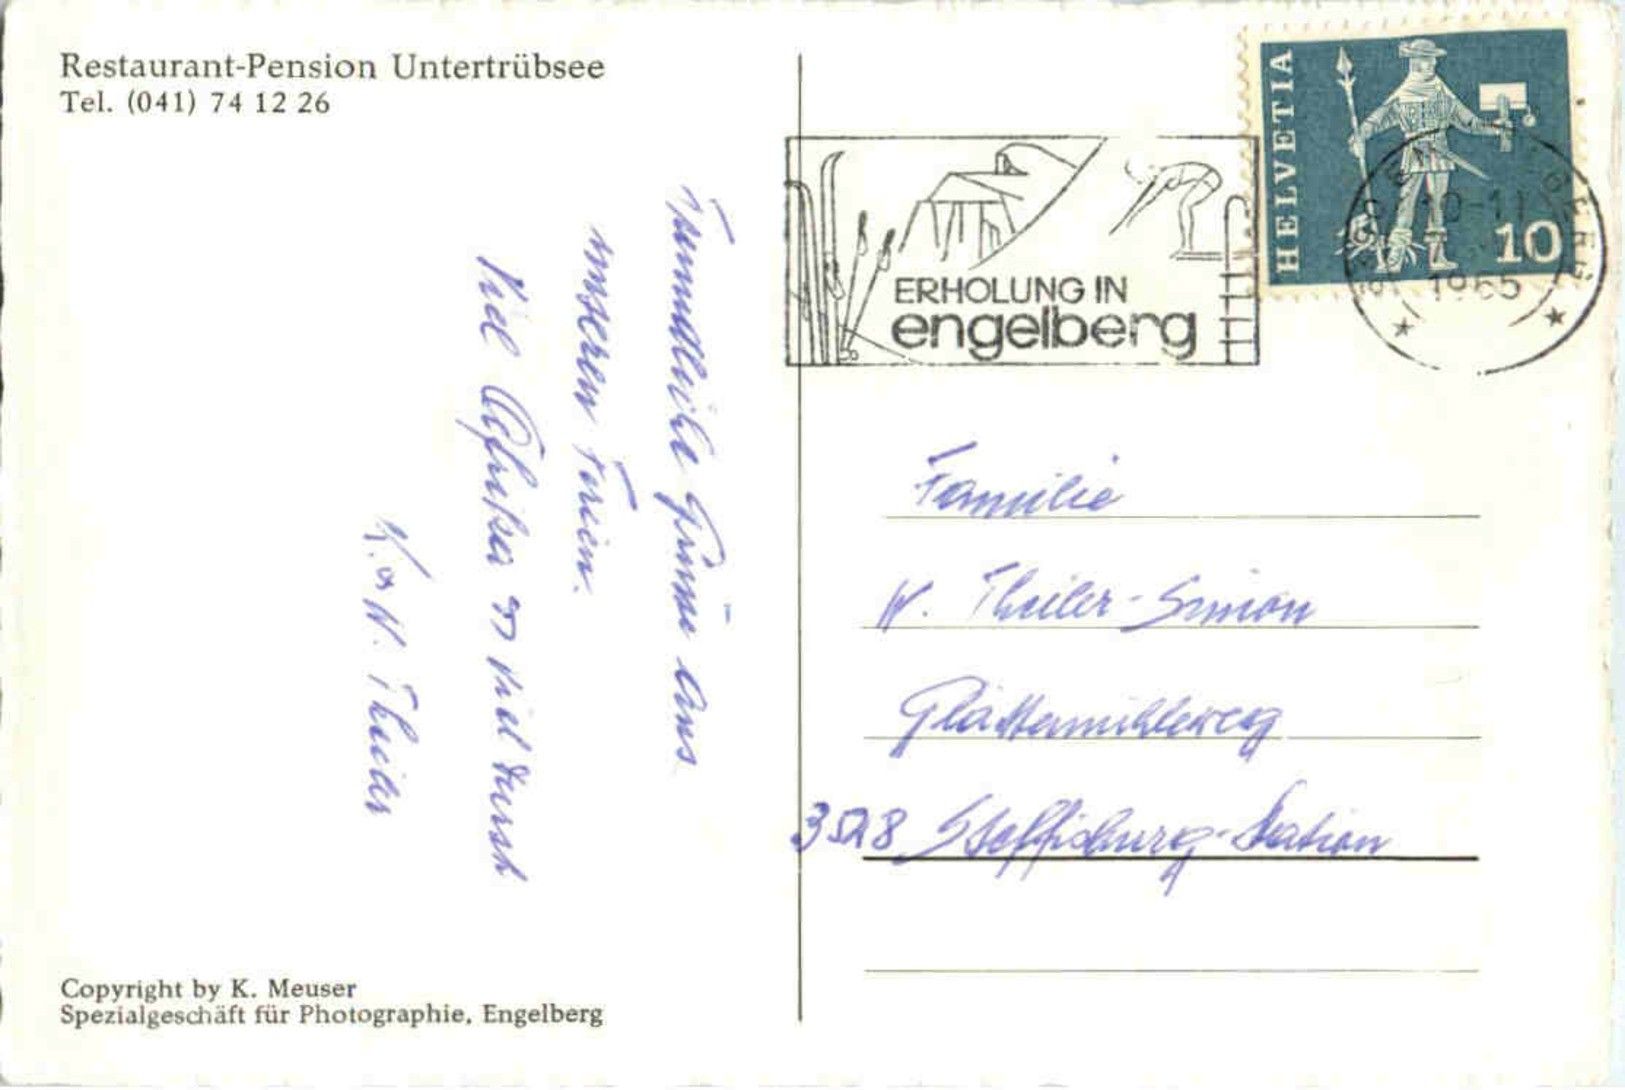 Restaurant-Pension Untertrübsee
Tel. (041) 74 12 26
HELVETIA
10
10-11
1965
ERHOLUNG IN
engelberg
Freundliche Grüsse aus
unseren Ferien.
Viel
viel Durst
K. W. Theiler
Familie
W. Theiler-Simon
Glättemühleweg
Steffisburg-Station
Copyright by K. Meuser
Spezialgeschäft für Photographie, Engelberg